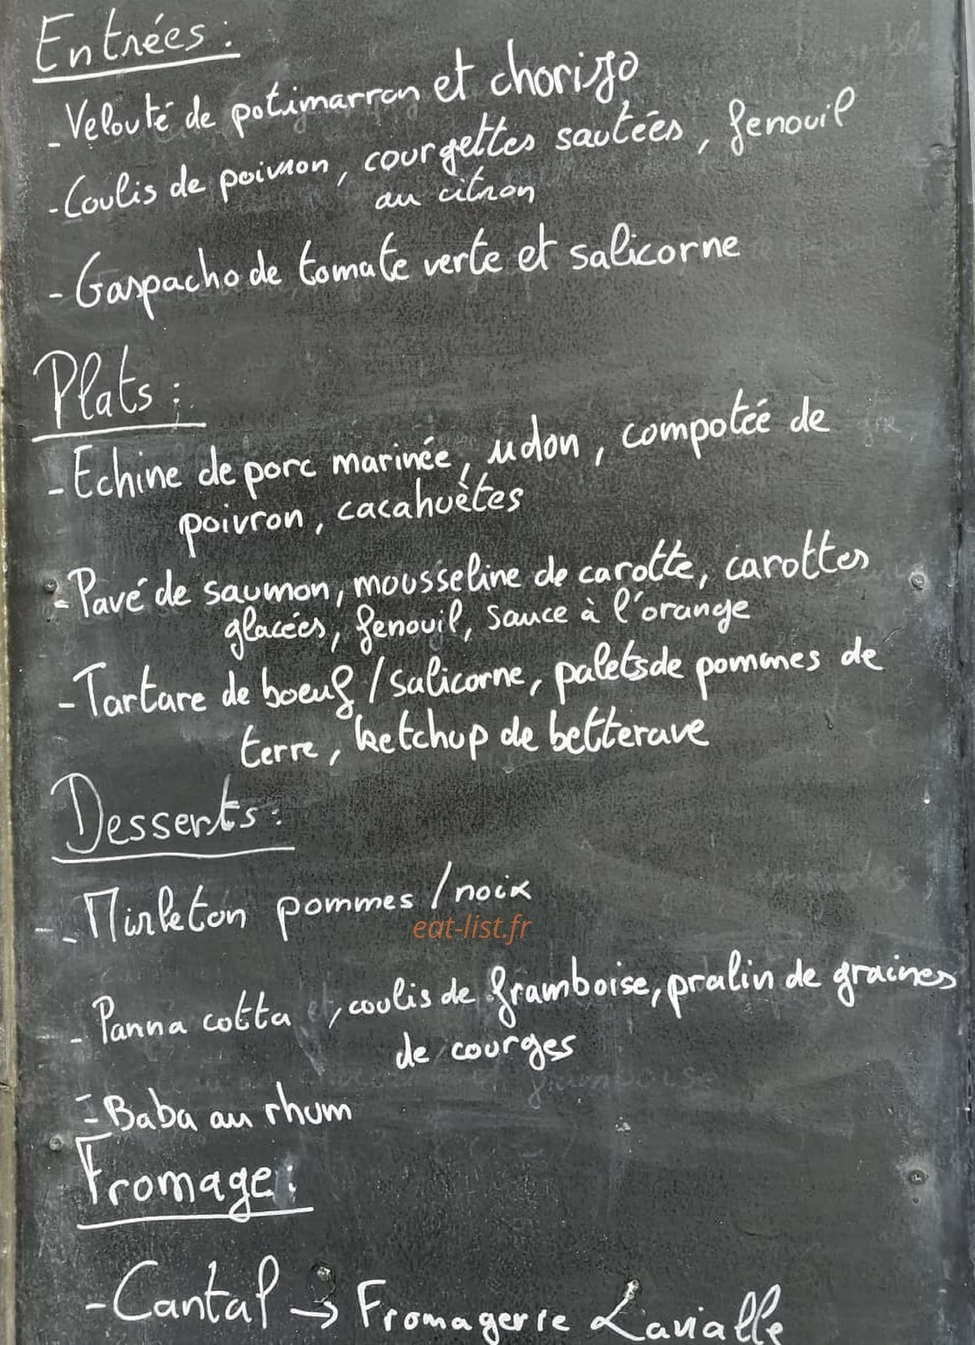 Entrées :
- Velouté de potimarron et chorizo
- Coulis de poivron, courgettes sautées, fenouil
au citron
- Gaspacho de tomate verte et salicorne
Plats :
- Echine de porc marinée, udon, compotée de
poivron, cacahuètes
- Pavé de saumon, mousseline de carotte, carottes
glacées, fenouil, sauce à l'orange
- Tartare de boeuf / salicorne, palets de pommes de
terre, ketchup de betterave
Desserts :
- Mirleton pommes / noix
eat-list.fr
- Panna cotta , coulis de framboise, pralin de graines
de courges
- Baba au rhum
Fromage :
- Cantal → Fromagerie Lavialle